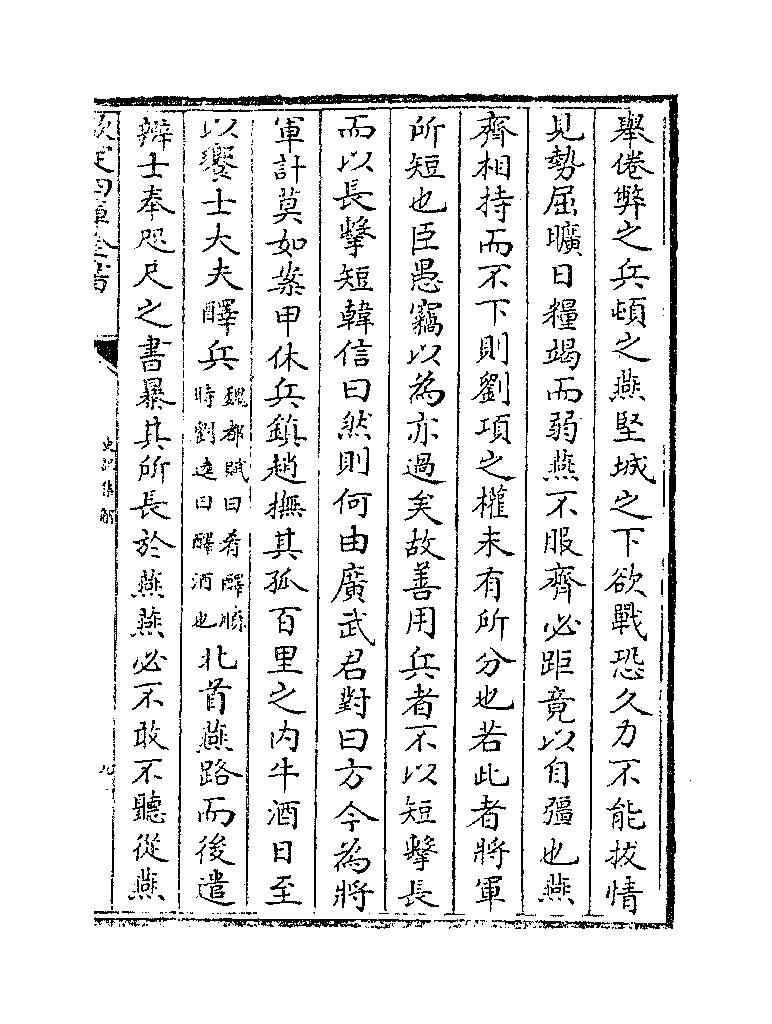 舉倦弊之兵頓之燕堅城之下欲戰恐久力不能拔情
見勢屈曠日糧竭而弱燕不服齊必距竟以自彊也燕
齊相持而不下則劉項之權未有所分也若此者將軍
所短也臣愚竊以為亦過矣故善用兵者不以短擊長
而以長擊短韓信曰然則何由廣武君對曰方今為將
軍計莫如案甲休兵鎮趙撫其孤百里之内牛酒日至
以饗士大夫醳兵魏都賦曰肴醳順時劉逵曰醳酒也北首燕路而後遣
辯士奉咫尺之書暴其所長於燕燕必不敢不聽從燕
欽定四庫全書
史記集解
九